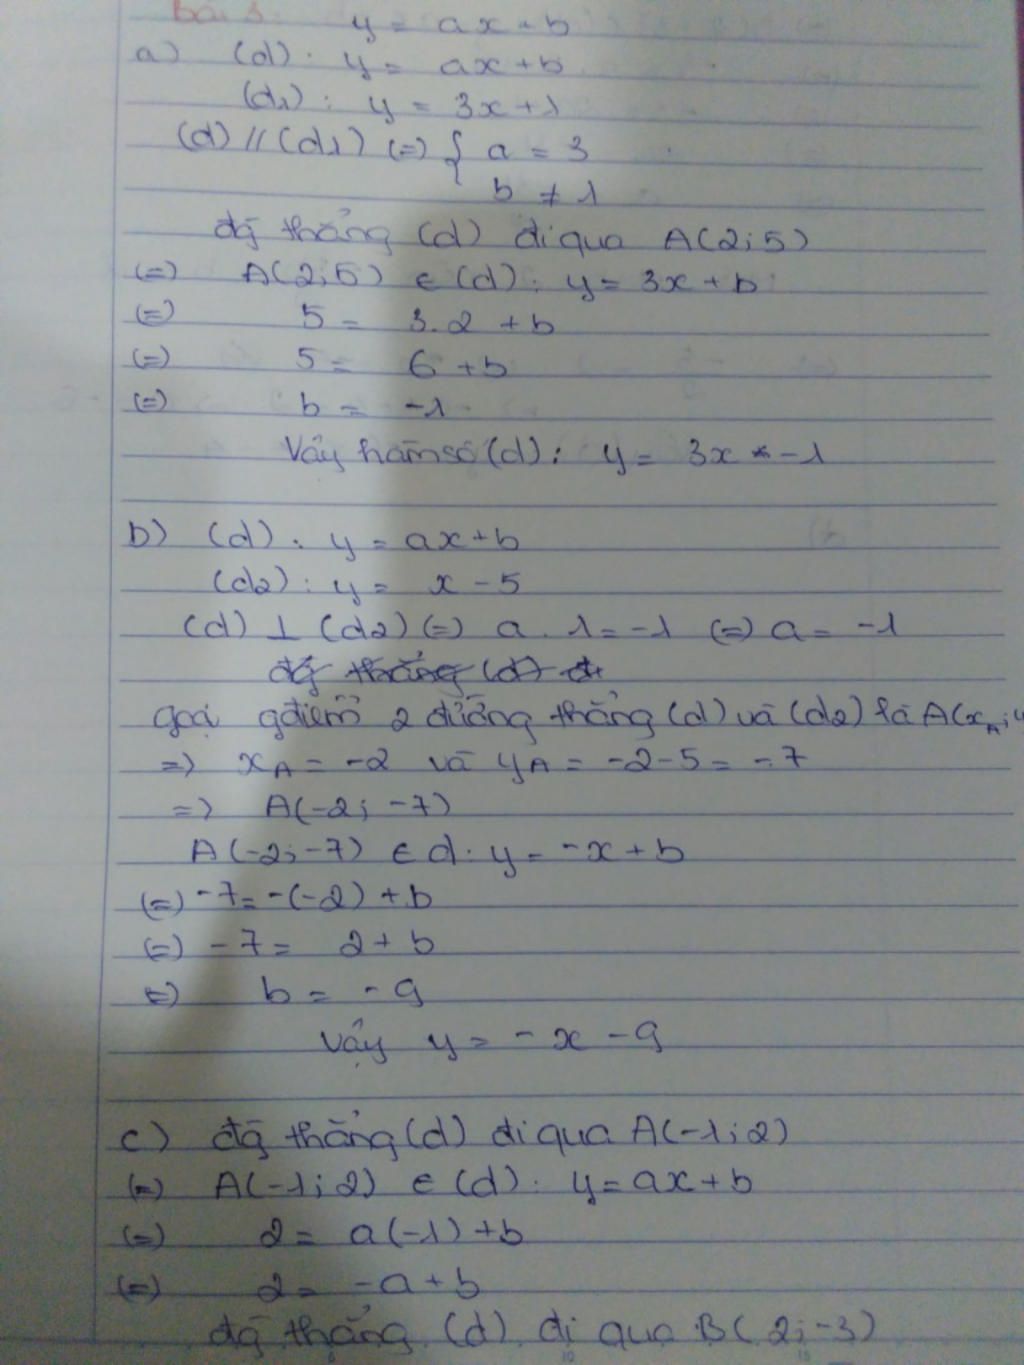 bài 3
y = ax + b
a) (d): y = ax + b
(d1): y = 3x + 1
(d) // (d1) (=) { a = 3
b ≠ 1
đg thẳng (d) đi qua A(2;5)
(=) A(2;5) ∈ (d): y = 3x + b
(=) 5 = 3.2 + b
(=) 5 = 6 + b
(=) b = -1
Vậy hàm số (d): y = 3x - 1
b) (d): y = ax + b
(d2): y = x - 5
(d) ⊥ (d2) (=) a . 1 = -1 (=) a = -1
đg thẳng (d) đi
gọi gđiểm 2 đường thẳng (d) và (d2) là A(xA; y
=) xA = -2 và yA = -2-5 = -7
=) A(-2; -7)
A(-2; -7) ∈ d: y = -x + b
(=) -7 = -(-2) + b
(=) -7 = 2 + b
(=) b = -9
Vậy y = -x - 9
c) đg thẳng (d) đi qua A(-1; 2)
(=) A(-1; 2) ∈ (d): y = ax + b
(=) 2 = a(-1) + b
(=) 2 = -a + b
đg thẳng (d) đi qua B(2; -3)